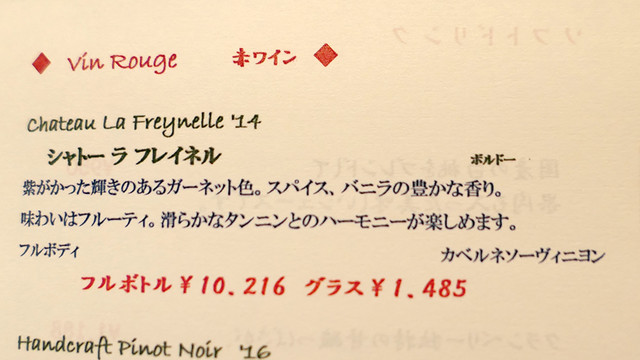 Vin Rouge 赤ワイン
Chateau La Freynelle '14
シャトー ラ フレイネル ボルドー
紫がかった輝きのあるガーネット色。スパイス、バニラの豊かな香り。
味わいはフルーティ。滑らかなタンニンとのハーモニーが楽しめます。
フルボディ カベルネソーヴィニヨン
フルボトル ¥10.216 グラス ¥1.485
Handcraft Pinot Noir '16